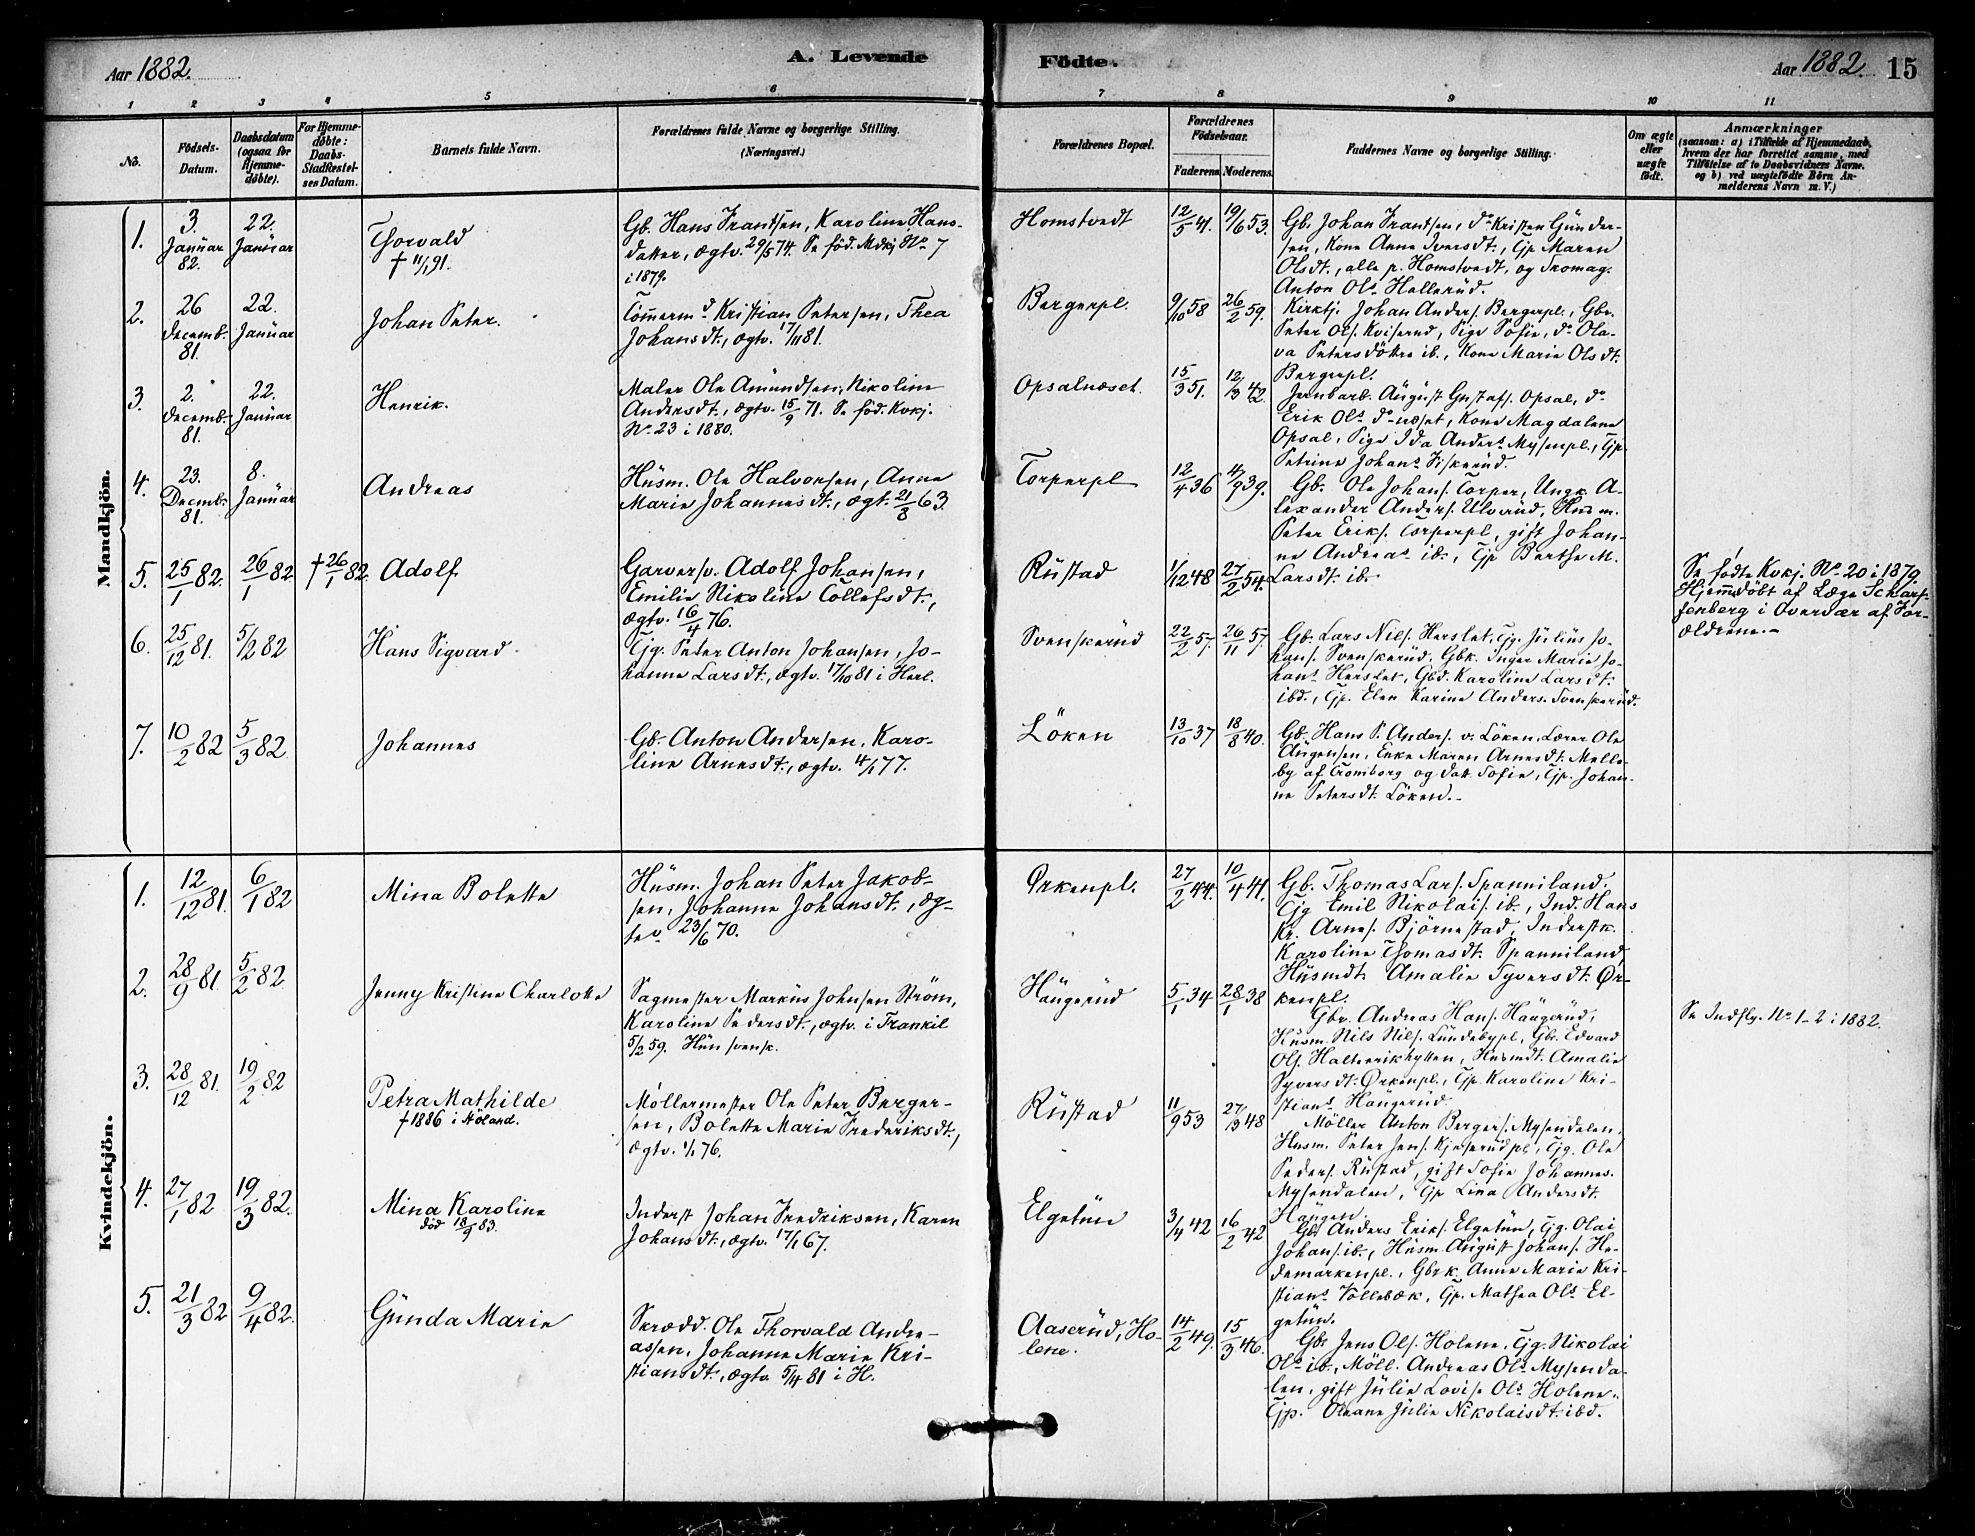 Aar 1882.
A. Levende
Födte.
Aar 1882.
15
1 2 3 4 5 6 7 8 9 10 11
No.
Födsels-
Datum.
Daabsdatum
(ogsaa for
Hjemme-
döbte).
For Hjemme-
döbte:
Daabs-
Stadfæstel-
ses Datum.
Barnets fulde Navn.
Forældrenes fulde Navne og borgerlige Stilling.
(Næringsvei.)
Forældrenes Bopæl.
Forældrenes
Födselsaar.
Faderens.
Moderens.
Faddernes Navne og borgerlige Stilling.
Om ægte
eller
uægte
födt.
Anmærkninger
(saasom: a) i Tilfælde af Hjemmedaab,
hvem der har forrettet samme, med
Tilföielse af to Daabsvidners Navne.
og b) ved uægtefödte Börn An-
melderens Navn m. V.)
Mandkjön.
1.
3.
Januar
82.
22.
Januar
Thorvald
† 11/1 91.
Gb. Hans Frandsen, Karoline Hans-
datter, ægtv. 29/5 74. Se föd. Mdkj No. 7
i 1879.
Homstvedt
12/5 41.
19/6 53.
Gb. Johan Frandsen, do Kristen Gunder-
sen, Kone Anne Iversdt., Gp Maren
Olsdt., alle p. Homstvedt, og Fromag.
Anton Ols. Hallerud.
2.
26
Decemb.
81.
22.
Januar
Johan Peter.
Tömerm.d Kristian Petersen, Thea
Johansdt., ægtv. 17/11 81.
Bergerpl.
9/10 58
26/2 59.
Kirktj. Johan Anders. Bergerpl., Gbr.
Peter Ols. Kviserud, Pige Sofie, do Ola-
va Petersdöttre ib., Kone Marie Olsdt.
Bergerpl.
3.
2.
Decemb.
81.
22.
Januar
Henrik.
Maler Ole Amundsen, Nikoline
Andersdt., ægtv. 15/9 71. Se föd. Kvkj.
No. 23 i 1880.
Opsalnæset.
15/3 51.
12/3 42.
Jernbarb. August Gustafs. Opsal, do
Erik Ols. do-næset, Kone Magdalene
Opsal, Pige Ida Anders. Mysenpl., Gp.
Petrine Johans. Fiskerud.
4.
23.
Decemb.
81.
8.
Januar
Andreas
Husm. Ole Halvorsen, Anne
Marie Johannesdt., ægt. 21/8 63.
Torperpl
12/4 36
4/9 39.
Gb. Ole Johans. Torper, Ungk. A-
lexander Anders. Ulverud, Husm.
Peter Eriks. Torperpl, gift Johan-
ne Andreas. ib., Gp Berthe M.
Larsdt. ib.
5.
25/1 82.
26/1 82
† 26/1 82.
Adolf
Garversv. Adolf Johansen,
Emilie Nikoline Tollefsdt.,
ægtv. 16/4 76.
Rustad
1/12 48
27/2 54.
Se födte Kvkj. No. 20 i 1879.
Hjemdöbt af Læge Scharf-
fenberg i Overvær af For-
ældrene.-
6.
25/12 81.
5/2 82
Hans Sigvard.
Gg. Peter Anton Johansen, Jo-
hanne Larsdt., ægtv. 17/10 81 i Herl.
Svenskerud
22/2 57.
26/11 57.
Gb. Lars Nils. Herslet, Gg. Julius Jo-
hans. Svenskerud. Gbk. Inger Marie Jo-
hans. Herslet, Gbd. Karoline Larsdt.
ibd., Gp. Elen Karine Anders. Svenskerud.
7.
10/2 82
5/3 82.
Johannes
Gb. Anton Andersen, Karo-
line Arnesdt., ægtv. 4/1 77.
Löken
13/10 37
18/8 40.
Gb. Hans P. Anders. v. Löken, Lærer Ole
Augensen, Enke Maren Arnesdt. Melle-
by af Tromborg og Dat. Sofie, Gp. Johan-
ne Petersdt. Löken.-
Kvindekjön.
1.
12/12 81.
6/1 82
Mina Bolette
Husm. Johan Peter Jakob-
sen, Johanne Johansdt., æg-
tev. 23/6 70.
Ørkenpl.
27/2 44.
10/4 41.
Gb. Thomas Lars. Spanniland.
Gg Emil Nikolais. ib., Ind. Hans
Kr. Arnes. Bjørnestad, Inderstk.
Karoline Thomasdt. Spanniland,
Husmdt. Amalie Syversdt. Ør-
kenpl.
2.
28/9 81.
5/2 82
Jenny Kristine Charlotte
Sagmester Markus Johnsen Ström,
Karoline Pedersdt., ægtv. i Frankil
5/2 59. Hun svensk.
Haugerud
5/1 34
28/1 38
Gbr. Andreas Hans. Haugerud,
Husm. Nils Nils. Lundebypl, Gbr. Edvard
Ols. Halterikhytten, Husmdt. Amalie
Syversdt. Ørkenpl., Gp. Karoline Kri-
stians. Haugerud.
Se Indfly. No. 1-2 i 1882.
3.
28/12 81.
19/2 82
Petra Mathilde
† 1886 i Höland.
Möllermester Ole Peter Berger-
sen, Bolette Marie Frederiksdt.,
ægtv. 1/1 76.
Rustad
11/9 53
27/3 48
Möller Anton Bergers. Mysendalen,
Husm. Peter Jens. Kjeserudpl, Gg. Ole
Peders. Rustad, gift Sofie Johannes.
Mysendalen, Gp Lina Andersdt.
Haugen.
4.
27/1 82
19/3 82.
Mina Karoline
död 18/9 83.
Inderst Johan Fredriksen, Karen
Johansdt., ægtv. 17/1 67.
Elgetun
3/4 42
16/2 42
Gb. Anders Eriks. Elgetun, Gg. Olai
Johans. ib., Husm. August Johans. He-
demarkenpl., Gbrk. Anne Marie Kri-
stians. Vollebæk, Gp. Mathea Ols. El-
getun.
5.
21/3 82
9/4 82.
Gunda Marie
Skrædd. Ole Thorvald Andre-
assen, Johanne Marie Kri-
stiansdt., ægtv. 5/4 81 i H.
Aaserud, Ho-
lene.
14/2 49.
15/3 46.
Gbr. Jens Ols. Holene, Gg. Nikolai
Ols. ib., Möll. Andreas Ols. Mysenda-
len, gift Julie Lovise Ols. Holene,
Gp. Oleane Julie Nikolaisdt. ibd.